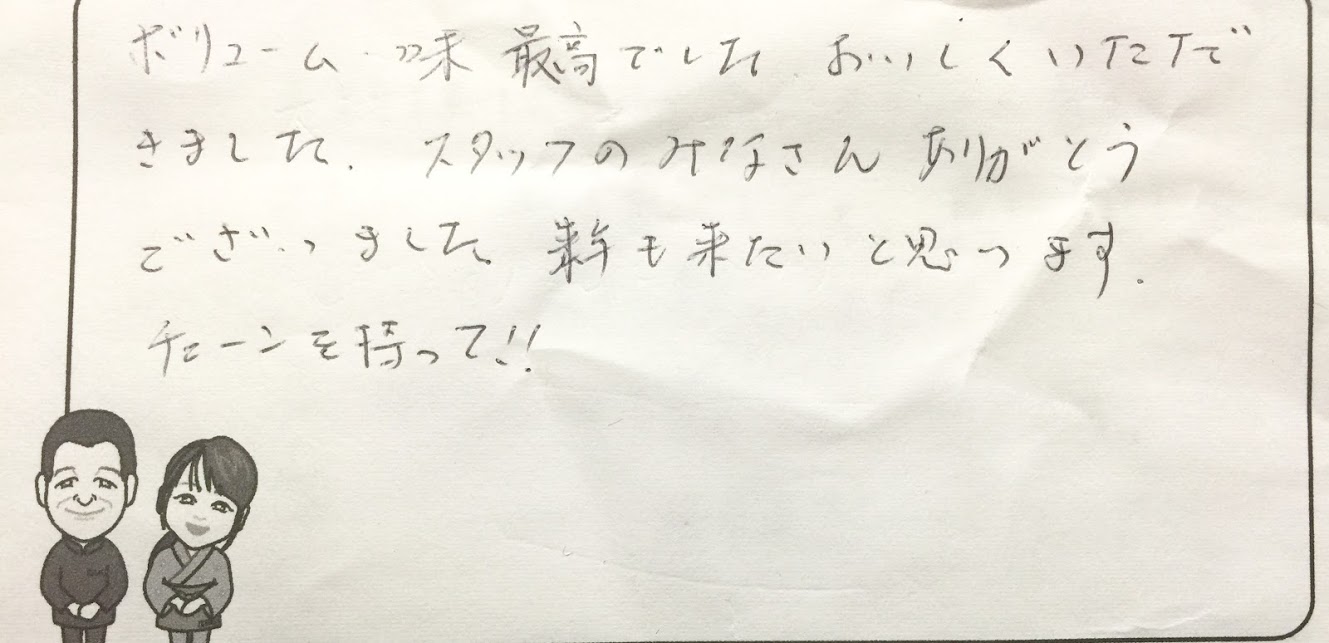 ボリューム・味 最高でした。おいしくいただで
きました。スタッフのみなさん ありがとう
ございました。来年も来たいと思います。
チェーンを持って!!